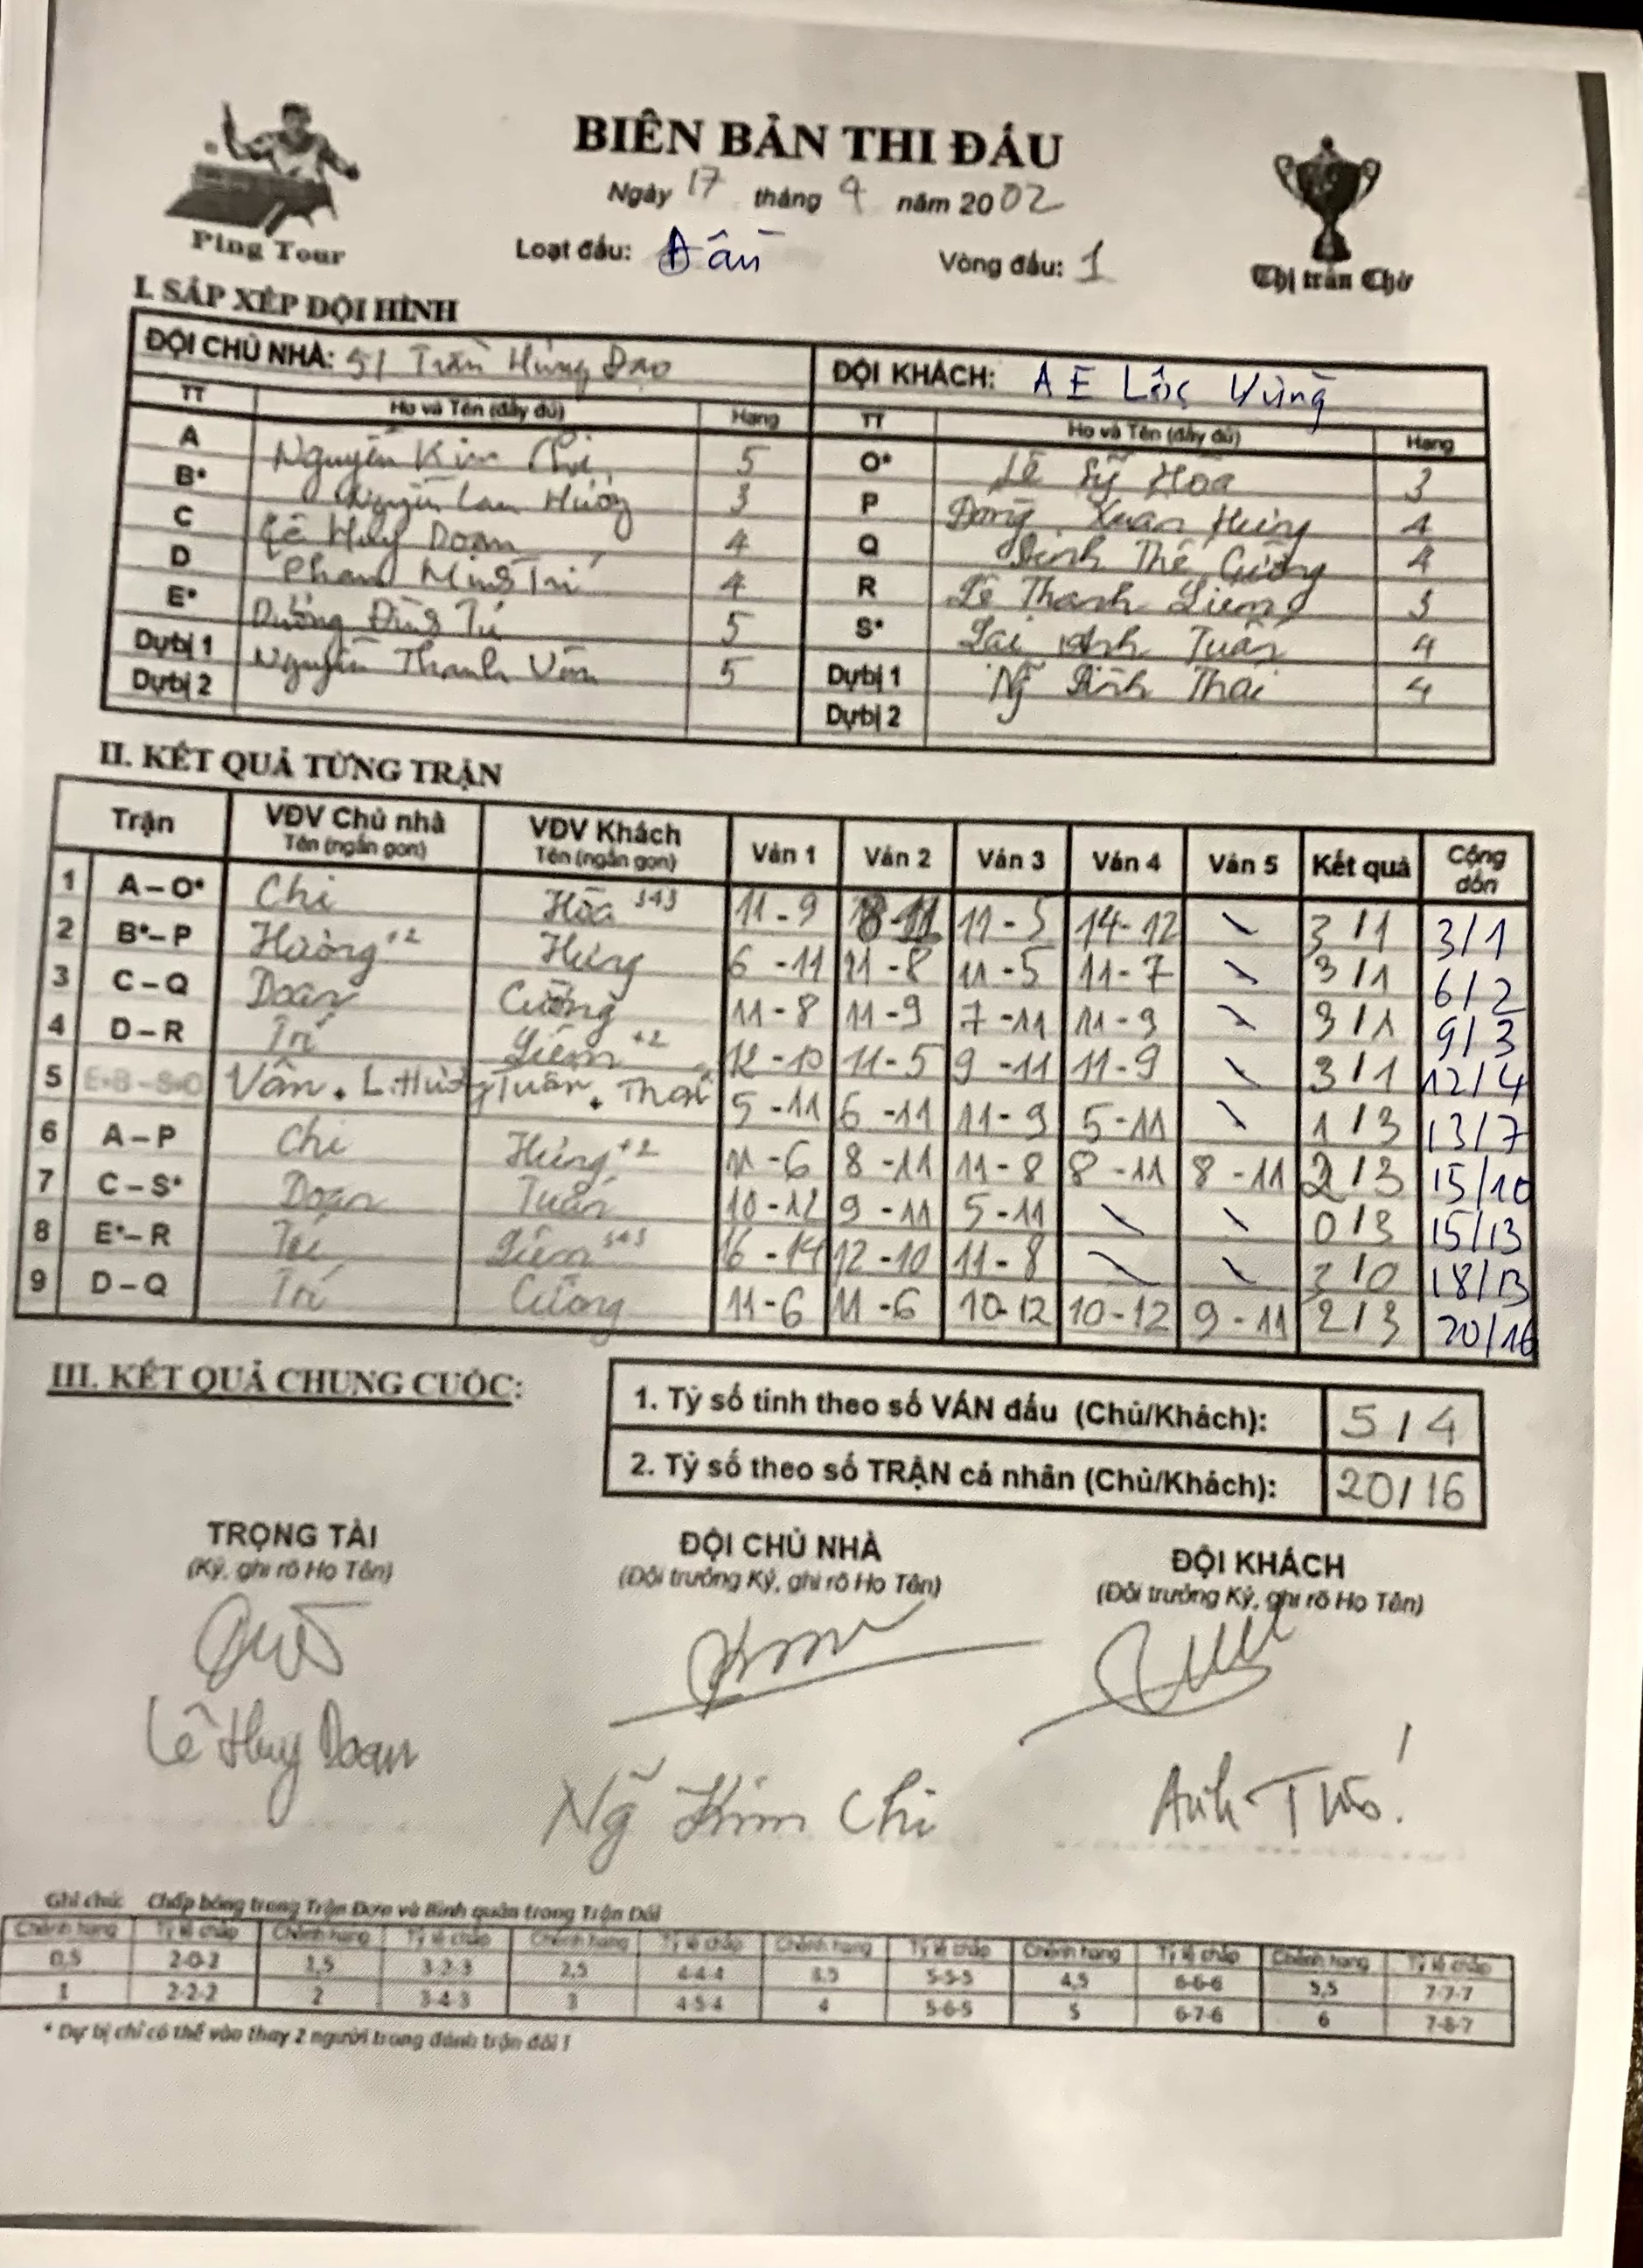 BIÊN BẢN THI ĐẤU
Ngày 17 tháng 9 năm 2002
Ping Tour
Loạt đấu: Đầu
Vòng đấu: 1
Thị trấn Chờ
I. SẮP XẾP ĐỘI HÌNH
ĐỘI CHỦ NHÀ: 51 Trần Hưng Đạo
ĐỘI KHÁCH: A E Lộc Vừng
TT Họ và Tên (đầy đủ) Hạng TT Họ và Tên (đầy đủ) Hạng
A Nguyễn Kim Chi 5 O* Lê Sỹ Hòa 3
B* Nguyễn Lan Hương 3 P Xuân Hưng 4
C Lê Huy Doan 4 Q Đinh Thế Cường 4
D Phạm Minh Trí 4 R Lê Thanh Liêm 3
E* Dương Đình Tú 5 S* Lại Anh Tuấn 4
Dự bị 1 Nguyễn Thanh Vân 5 Dự bị 1 Ng Đình Thái 4
Dự bị 2 Dự bị 2
II. KẾT QUẢ TỪNG TRẬN
Trận VĐV Chủ nhà Tên (ngắn gọn) VĐV Khách Tên (ngắn gọn) Ván 1 Ván 2 Ván 3 Ván 4 Ván 5 Kết quả Cộng dồn
1 A – O* Chi Hòa 343 11 - 9 8-11 11 - 5 14 - 12 \ 3 / 1 3 / 1
2 B* – P Hương +2 Hưng 6 - 11 11 - 8 11 - 5 11 - 7 \ 3 / 1 6 / 2
3 C – Q Doan Cường 11 - 8 11 - 9 7 - 11 11 - 9 \ 3 / 1 9 / 3
4 D – R Trí Liêm +2 12 - 10 11 - 5 9 - 11 11 - 9 \ 3 / 1 12 / 4
5 E+B – S+O Vân + L.Hương Tuấn + Thái 5 - 11 6 - 11 11 - 9 5 - 11 \ 1 / 3 13 / 7
6 A – P Chi Hưng +2 11 - 6 8 - 11 11 - 8 8 - 11 8 - 11 2 / 3 15 / 10
7 C – S* Doan Tuấn 10 - 12 9 - 11 5 - 11 \ \ 0 / 3 15 / 13
8 E* – R Tú Liêm 343 16 - 14 12 - 10 11 - 8 \ \ 3 / 0 18 / 13
9 D – Q Trí Cường 11 - 6 11 - 6 10 - 12 10 - 12 9 - 11 2 / 3 20 / 16
III. KẾT QUẢ CHUNG CUỘC:
1. Tỷ số tính theo số VÁN đấu (Chủ/Khách): 5 / 4
2. Tỷ số theo số TRẬN cá nhân (Chủ/Khách): 20 / 16
TRỌNG TÀI
(Ký, ghi rõ Họ Tên)
ĐỘI CHỦ NHÀ
(Đội trưởng Ký, ghi rõ Họ Tên)
ĐỘI KHÁCH
(Đội trưởng Ký, ghi rõ Họ Tên)
Lê Huy Doan
Ng Kim Chi
Anh
Ghi chú: Chấp bóng trong Trận Đơn và Bình quân trong Trận Đôi
Chênh hạng Tỷ lệ chấp Chênh hạng Tỷ lệ chấp Chênh hạng Tỷ lệ chấp Chênh hạng Tỷ lệ chấp Chênh hạng Tỷ lệ chấp Chênh hạng Tỷ lệ chấp
0,5 2-0-2 1,5 3-2-3 2,5 4-4-4 3,5 5-5-5 4,5 6-6-6 5,5 7-7-7
1 2-2-2 2 3-4-3 3 4-5-4 4 5-6-5 5 6-7-6 6 7-8-7
* Dự bị chỉ có thể vào thay 2 người trong đánh trận đôi !